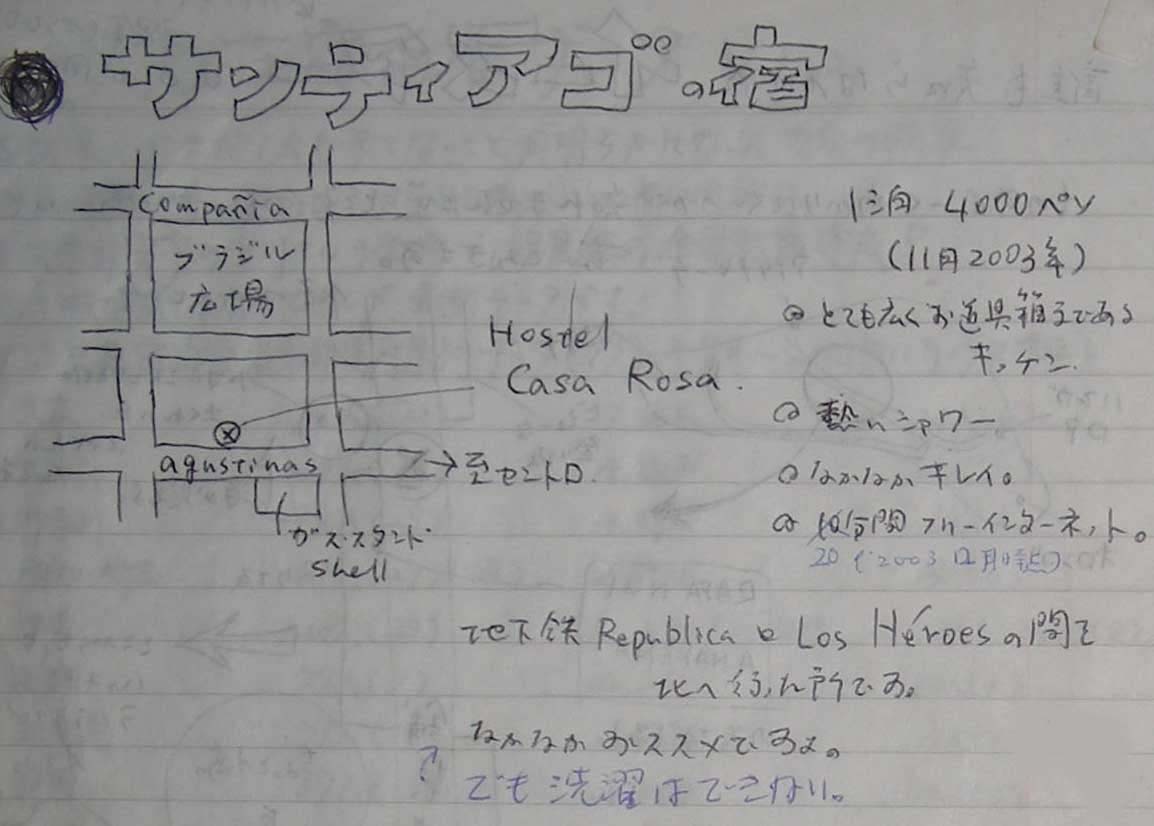 サンティアゴの宿
Compañia
ブラジル
広場
Hostel
Casa Rosa.
agustinas
→至セントロ
ガススタンド
Shell
1泊 4000ペソ
(11月2003年)
とても広くお道具箱まである
キッチン.
熱いシャワー
なかなかキレイ。
分間フリーインターネット。
20 2003 12月時点
地下鉄 Republica と Los Héroesの間を
北へ行った所です。
なかなかおススメですよ。
でも洗濯はできない。